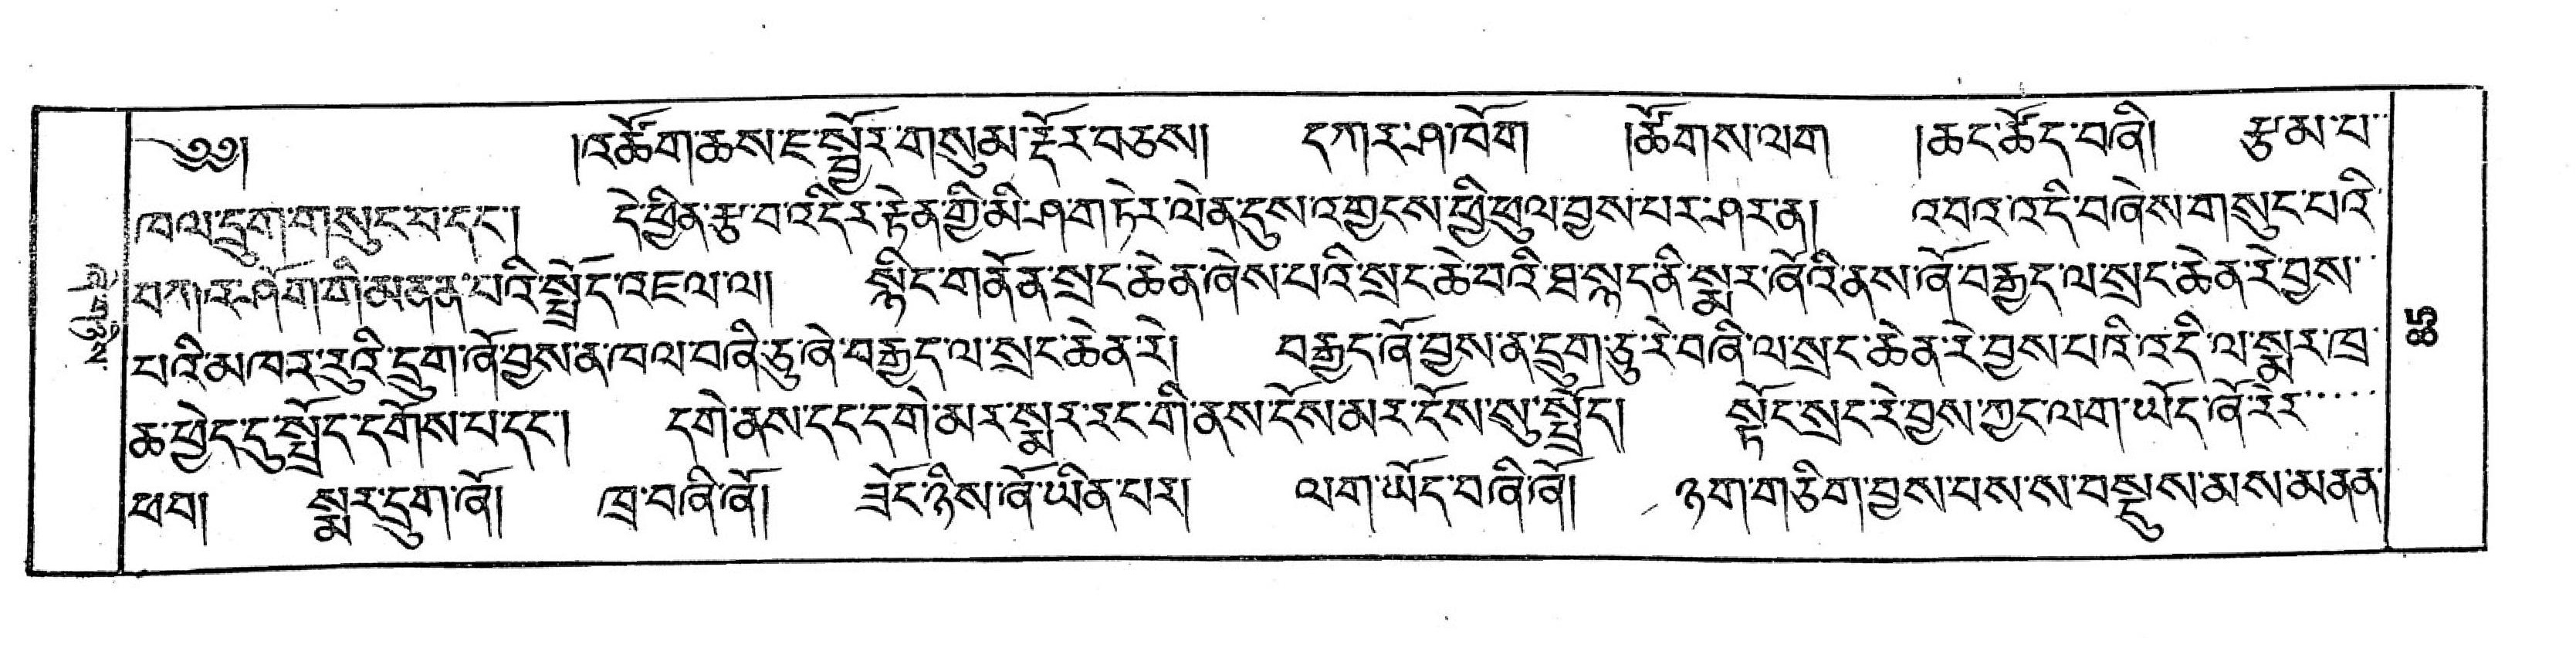 ༄༅། །འཚོག་ཆས་ཇ་སྦྱོར་གསུམ་རྡོར་བཅས། དཀར་ཤ་ཁོག །ཚོགས་ལག །ཆང་ཚོད་བཞི། རྩམ་པ་
ཁལ་དྲུག་གསུང་བ་དང་། དེ་ཕྱིན་རྩ་བ་འདིར་རྟེན་གྱི་མི་ཤ་གཏེར་ལེན་དུས་འགྱངས་ཕྱི་ཕུལ་བྱས་པར་ཤར་ན། འབབ་འདི་བཞེས་གསུང་པའི་
བཀར་ཤོག་གི་མནན་པའི་སྤྲོད་འཇལ་ལ། སྙིང་གནོན་སྲང་ཆེན་ཞེས་པའི་སྲང་ཆེ་བའི་ཐ་སྙད་ནི་སྨར་ཞོའི་ནས་ཞོ་བརྒྱད་ལ་སྲང་ཆེན་རེ་བྱས་
པའི་མཁར་རུའི་དྲུག་ཞོ་བྱས་ན་ཁལ་བཞི་ཅུ་ཞེ་བརྒྱད་ལ་སྲང་ཆེན་རེ། བརྒྱད་ཞོ་བྱས་ན་དྲུག་ཅུ་རེ་བཞི་ལ་སྲང་ཆེན་རེ་བྱས་པའི་འདི་ལ་སྨར་ཁྲ་
ཆ་ཕྱེད་དུ་སྤྲོད་དགོས་པ་དང་། དགེ་ནས་དང་དགེ་མར་སྨར་རང་གི་ནས་ངོས་མར་ངོས་སུ་སྤྲོད། སྟོང་སྲང་རེ་བྱས་ཀྱང་ལག་ཡོད་ཞོ་རེར་
ཕབ། སྨར་དྲུག་ཞོ། ཁྲ་བཞི་ཞོ། ཟོང་ཉིས་ཞོ་ཡིན་པར། ལག་ཡོད་བཞི་ཞོ། ཉག་གཅིག་བྱས་པས་ས་བསྡུས་མས་མནན་